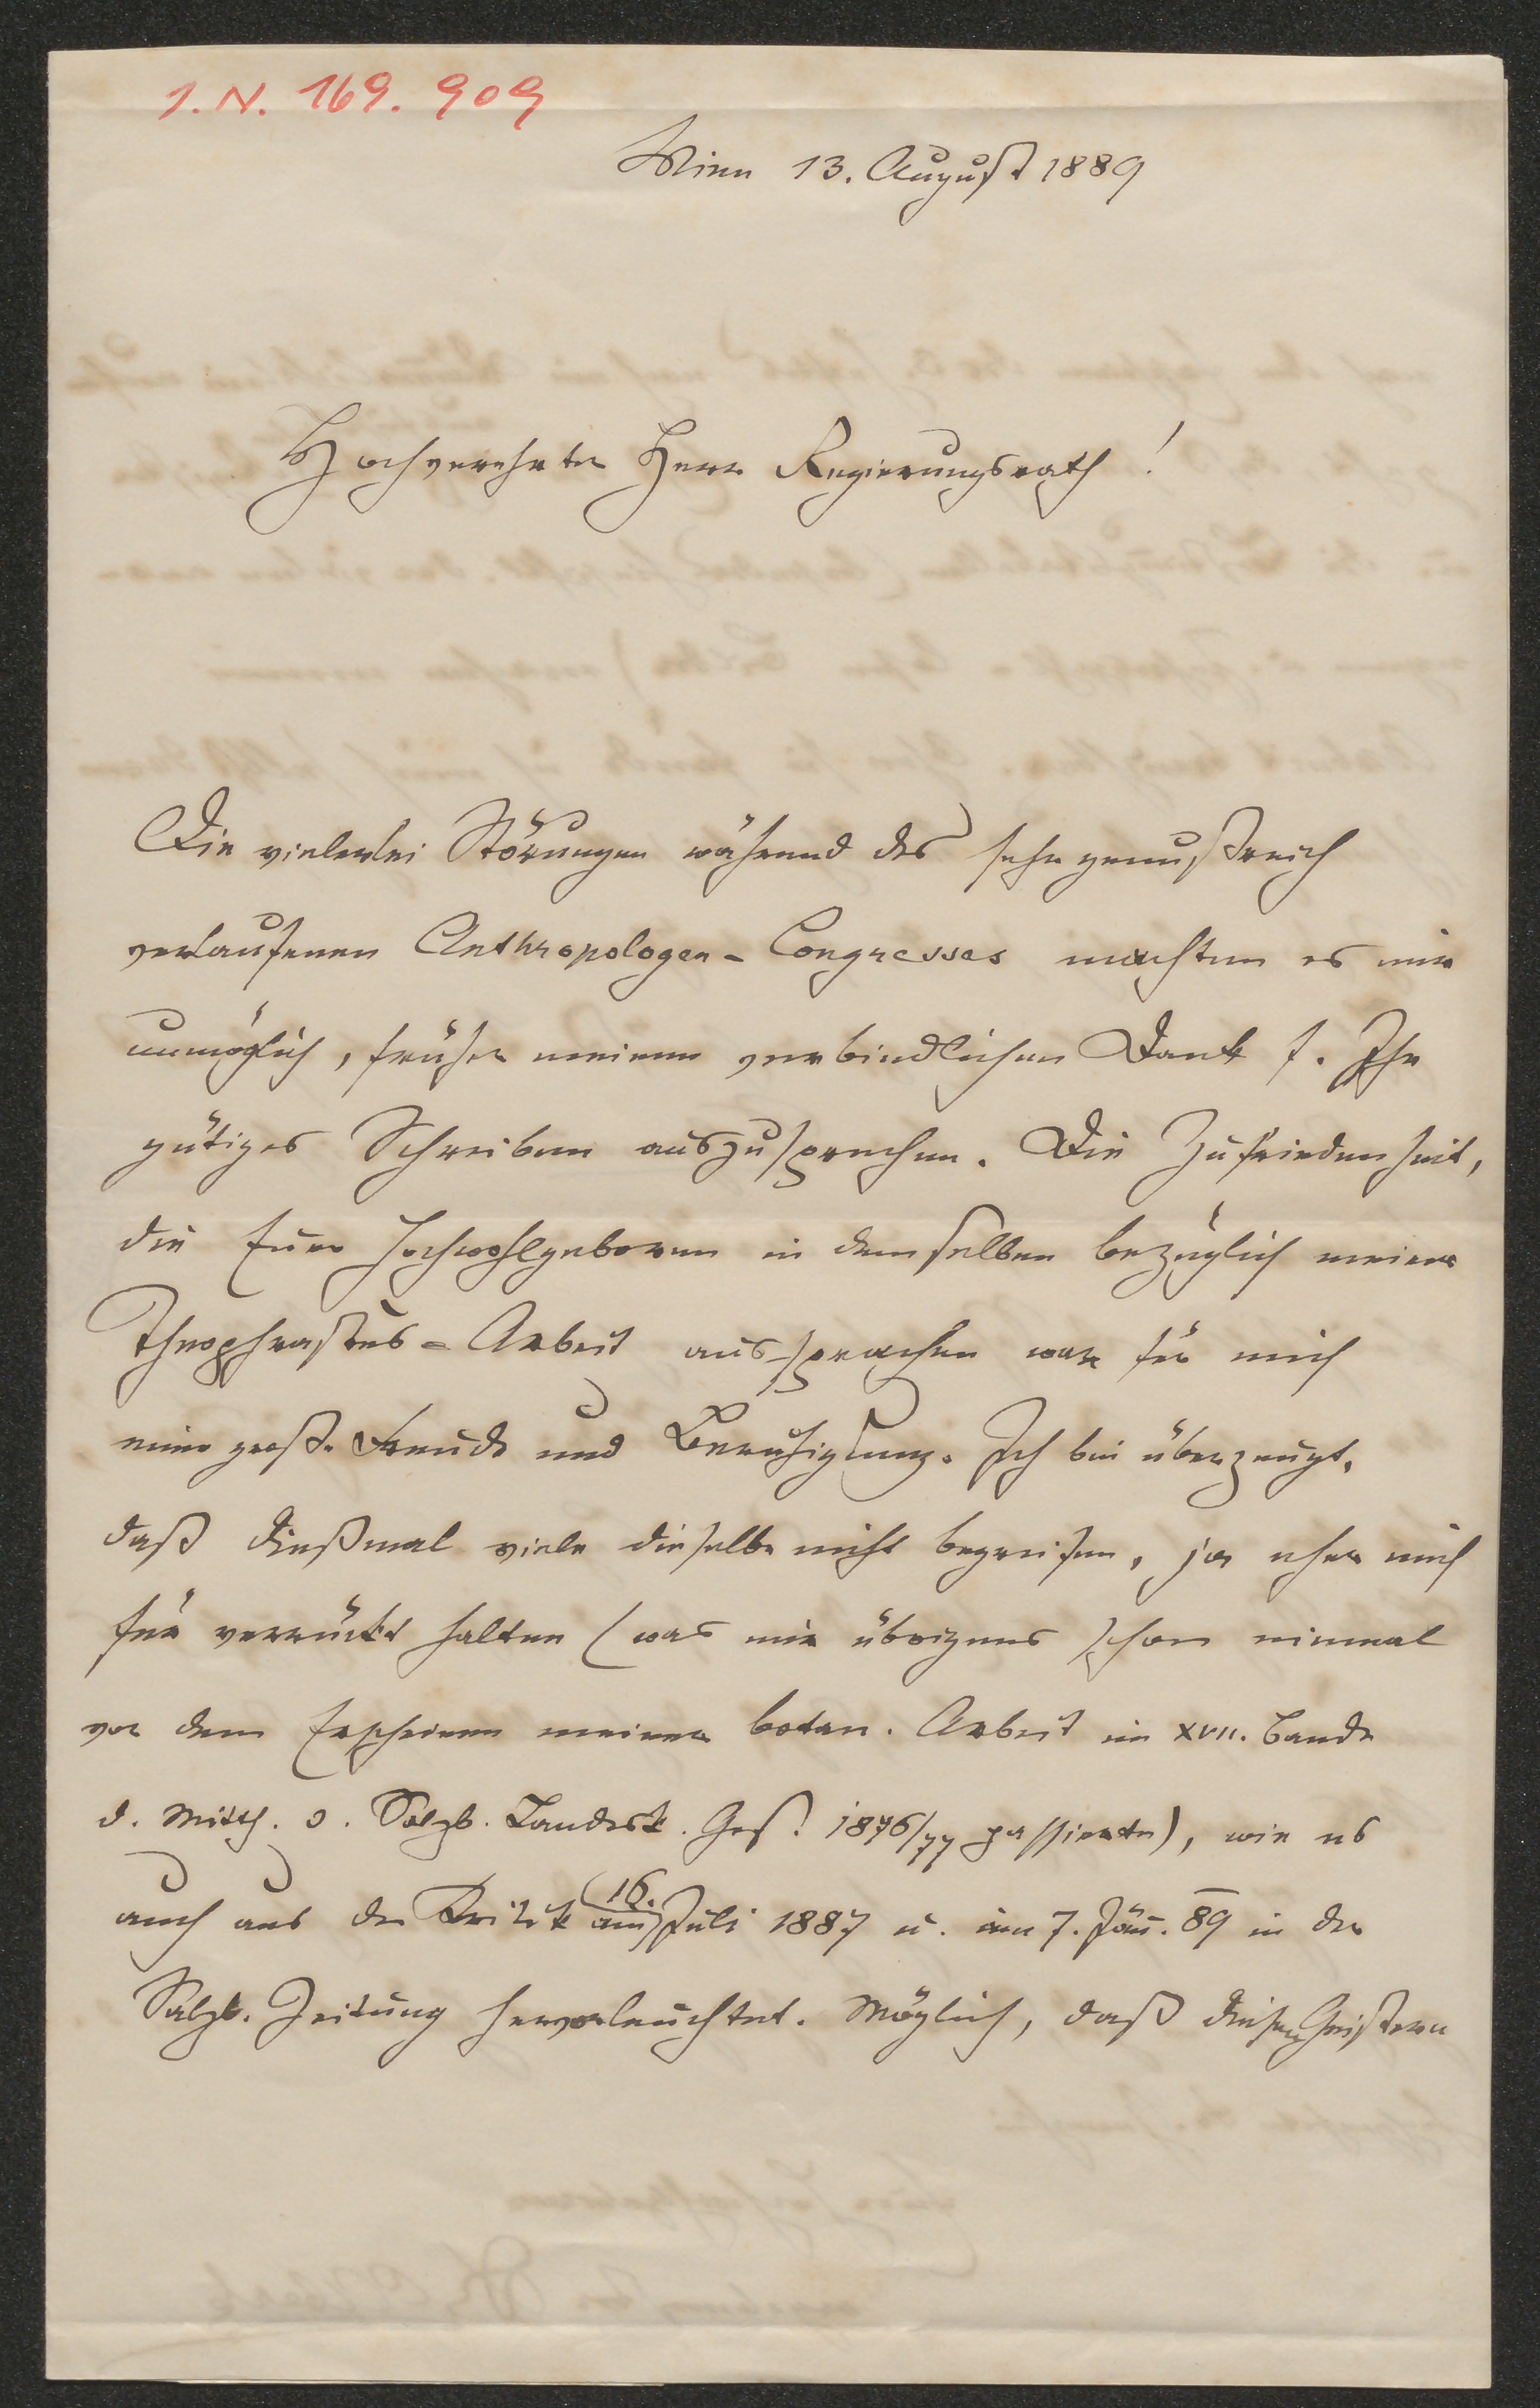 I. N. 169.909
Wien 13. August 1889
Hochverehrter Herr Regierungsrath!
Die vielerlei Störungen während des sehr genußreich
verlaufenen Anthropologen-Congresses machten es mir
unmöglich, früher meinen verbindlichen Dank f. Ihr
gütiges Schreiben auszusprechen. Die Zufriedenheit,
die Euer Hochwohlgeboren in demselben bezüglich meiner
Theophrastus-Arbeit aussprachen war für mich
eine große Freude und Beruhigung. Ich bin überzeugt,
daß dießmal viele dieselbe nicht begreifen, ja eher mich
für verrückt halten (was mir übrigens schon einmal
vor dem Erscheinen meiner botan. Arbeit im XVII. Bande
d. Mitth. d. Salzb. Landesk. Ges. 1876/77 passierte), wie es
auch aus der Kritik am 16. Juli 1887 u. am 7. Jän. 89 in der
Salzb. Zeitung hervorleuchtet. Möglich, daß diesen Geistern